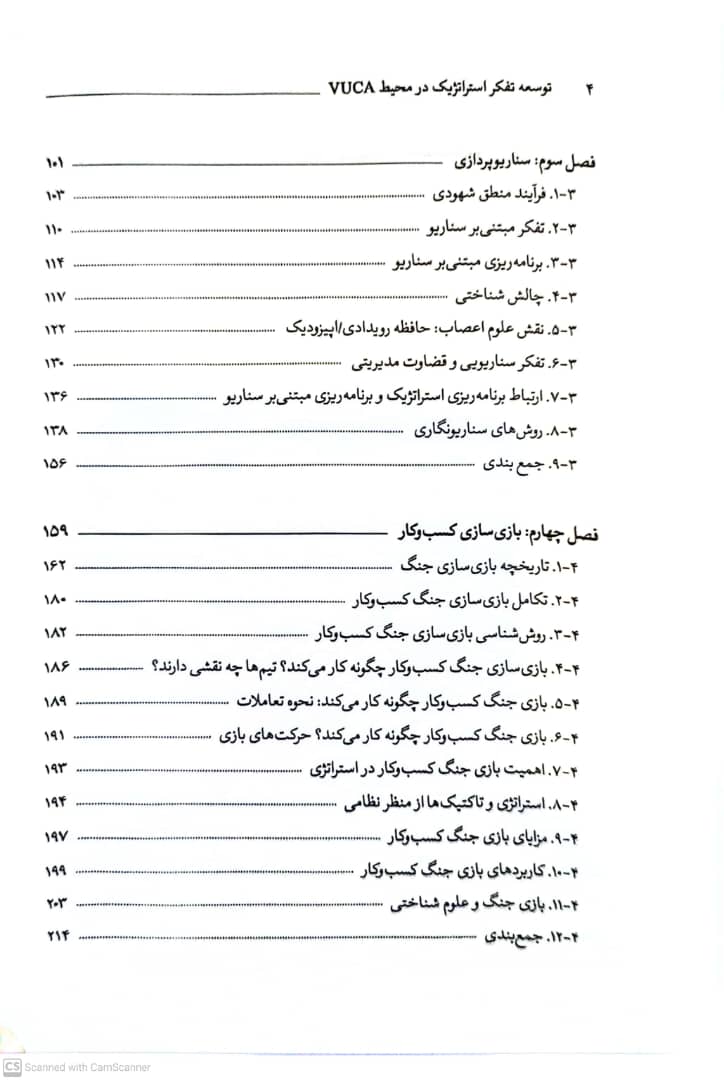 ۴ توسعه تفکر استراتژیک در محیط VUCA
فصل سوم: سناریوپردازی ۱۰۱
۳-۱. فرآیند منطق شهودی ۱۰۳
۳-۲. تفکر مبتنی‌بر سناریو ۱۱۰
۳-۳. برنامه‌ریزی مبتنی‌بر سناریو ۱۱۴
۳-۴. چالش شناختی ۱۱۷
۳-۵. نقش علوم اعصاب: حافظه رویدادی/اپیزودیک ۱۲۲
۳-۶. تفکر سناریویی و قضاوت مدیریتی ۱۳۰
۳-۷. ارتباط برنامه‌ریزی استراتژیک و برنامه‌ریزی مبتنی‌بر سناریو ۱۳۶
۳-۸. روش‌های سناریونگاری ۱۳۸
۳-۹. جمع بندی ۱۵۶
فصل چهارم: بازی‌سازی کسب‌وکار ۱۵۹
۴-۱. تاریخچه بازی‌سازی جنگ ۱۶۲
۴-۲. تکامل بازی‌سازی جنگ کسب‌وکار ۱۸۰
۴-۳. روش‌شناسی بازی‌سازی جنگ کسب‌وکار ۱۸۲
۴-۴. بازی‌سازی جنگ کسب‌وکار چگونه کار می‌کند؟ تیم‌ها چه نقشی دارند؟ ۱۸۶
۴-۵. بازی جنگ کسب‌وکار چگونه کار می‌کند: نحوه تعاملات ۱۸۹
۴-۶. بازی جنگ کسب‌وکار چگونه کار می‌کند؟ حرکت‌های بازی ۱۹۱
۴-۷. اهمیت بازی جنگ کسب‌وکار در استراتژی ۱۹۳
۴-۸. استراتژی و تاکتیک‌ها از منظر نظامی ۱۹۴
۴-۹. مزایای بازی جنگ کسب‌وکار ۱۹۷
۴-۱۰. کاربردهای بازی جنگ کسب‌وکار ۱۹۹
۴-۱۱. بازی جنگ و علوم شناختی ۲۰۳
۴-۱۲. جمع‌بندی ۲۱۴
CS Scanned with CamScanner